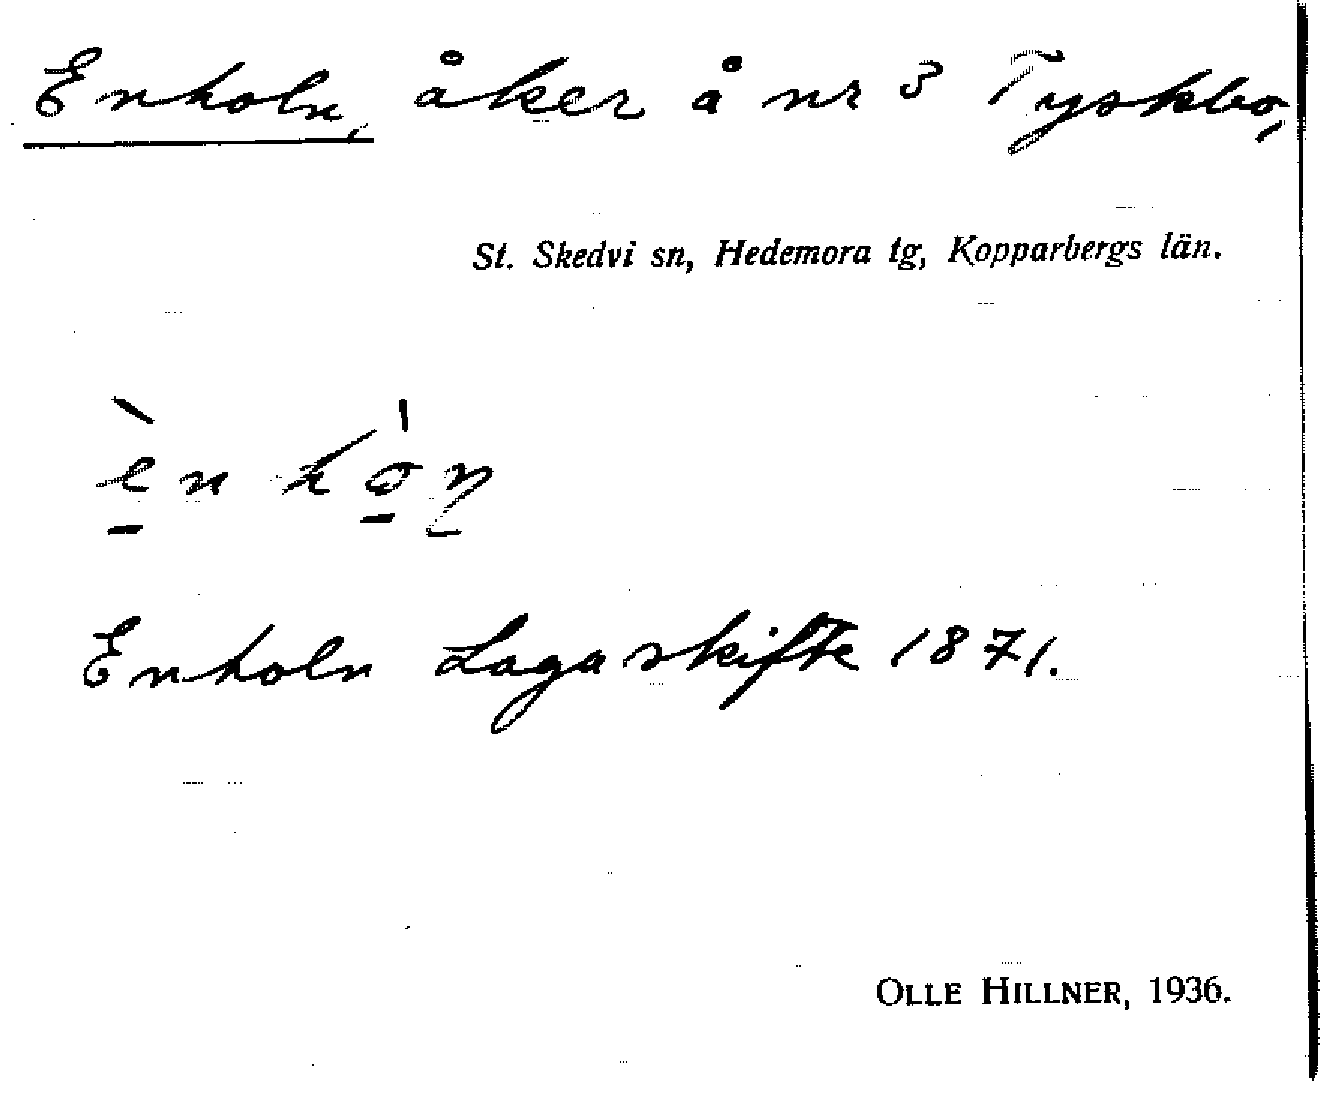 Enholn, åker å nr 3 Tyskbo,
St. Skedvi sn, Hedemora tg, Kopparbergs län.
Enholn Laga skifte 1871.
OLLE HILLNER, 1936.